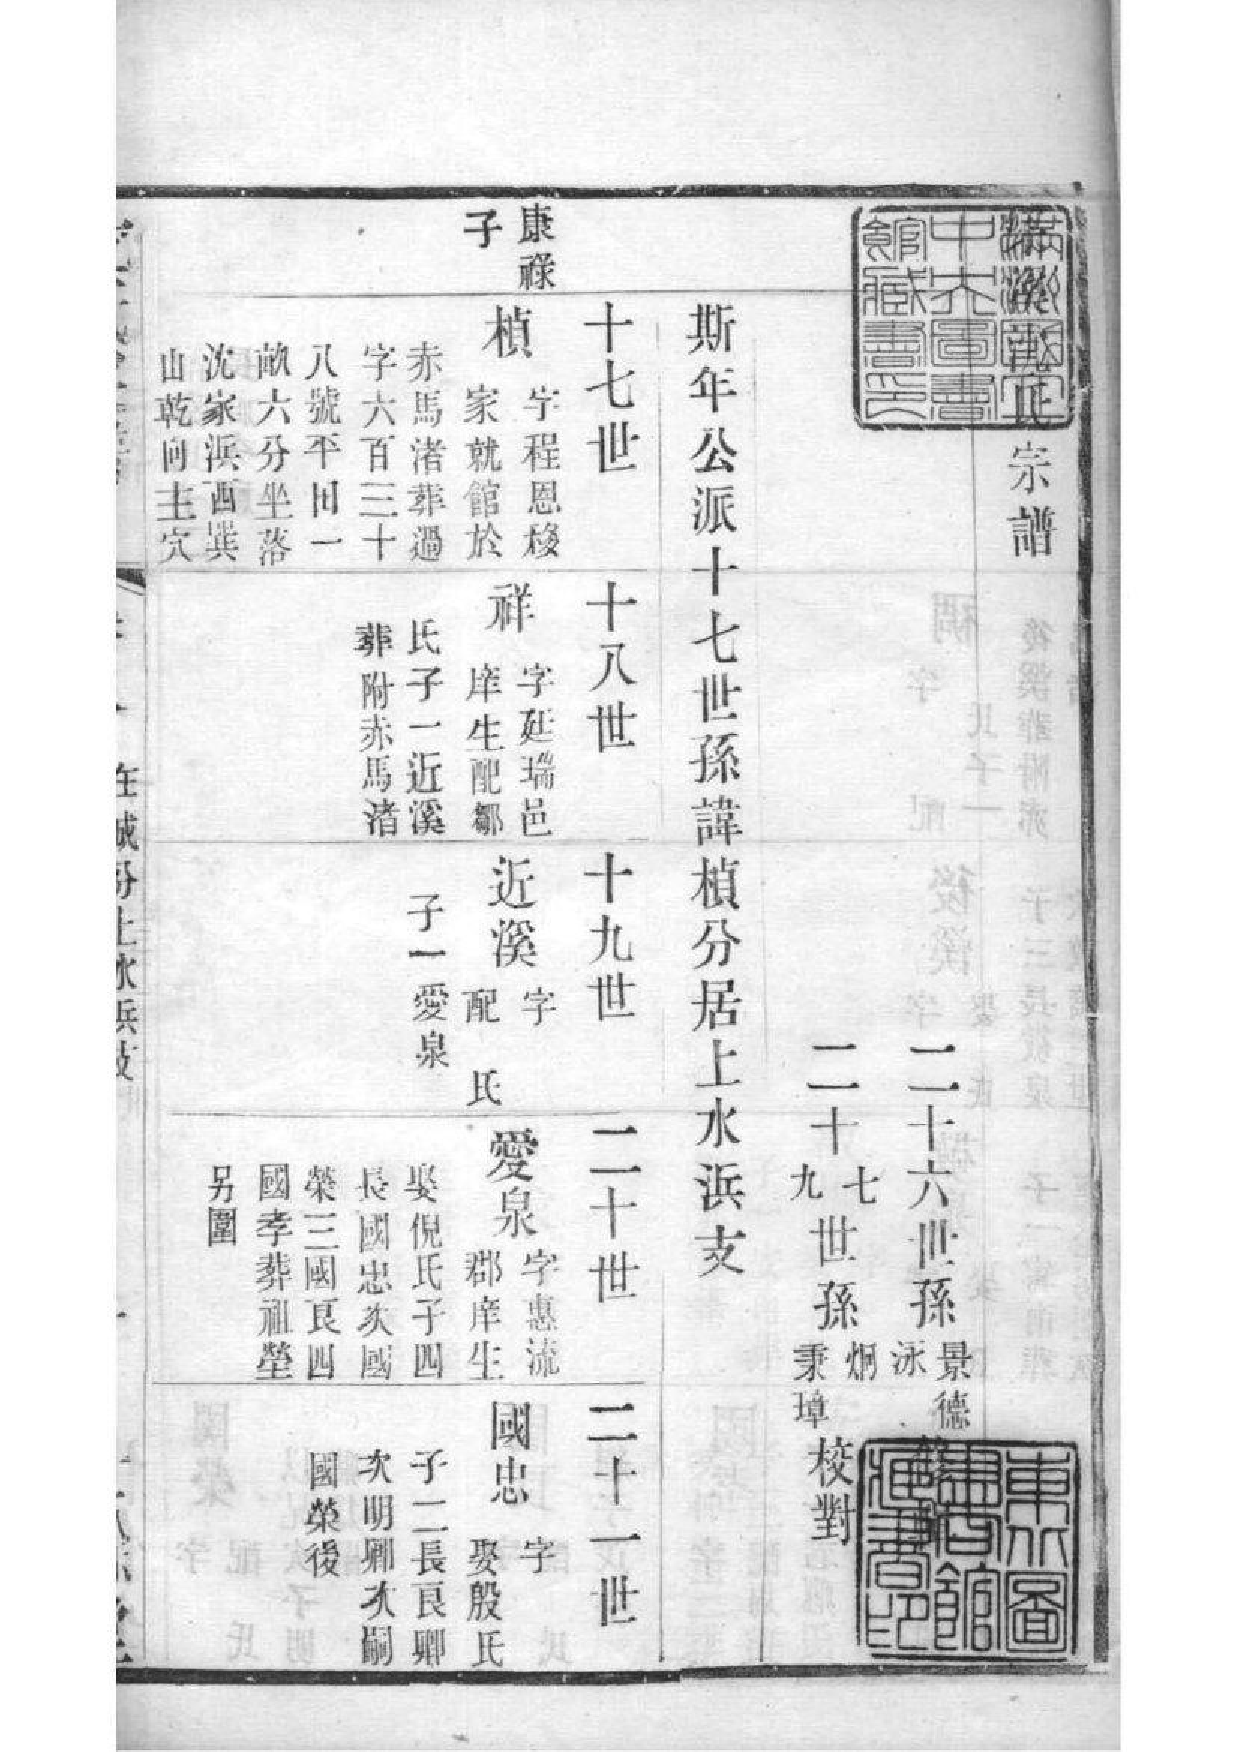 氏宗譜
二十六世孫 景德 泳
二十七九世孫 炯 秉璋 校對
斯年公派十七世孫諱楨分居上水浜支
十七世
十八世
十九世
二十世
二十一世
康祿
子
楨 字程恩移
家就館於
赤馬渚葬過
字六百三十
八號平田一
畝六分坐落
沈家浜西巽
山乾向主穴
祥 字廷瑞邑
庠生配鄒
氏子一近溪
葬附赤馬渚
近溪 字
配 氏
子一愛泉
愛泉 字惠流
郡庠生
娶倪氏子四
長國忠次國
榮三國良四
國孝葬祖塋
另圍
國忠 字
娶殷氏
子二長良卿
次明卿次嗣
國榮後
在城分上水浜支
東北圖書館藏書印